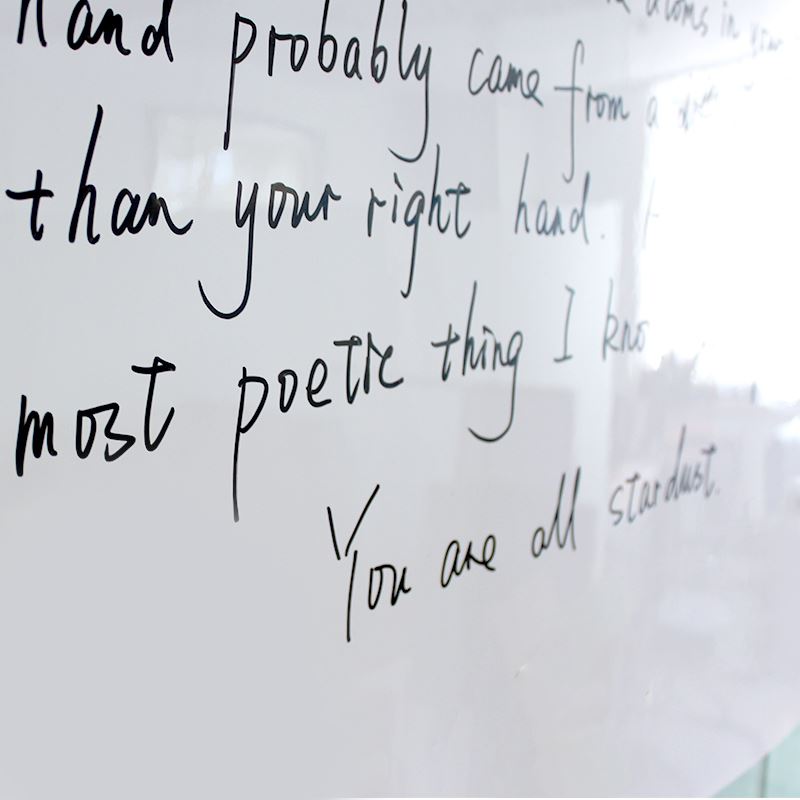 atoms in your
hand probably came from a
than your right hand.
most poetic thing I kno
You are all stardust.